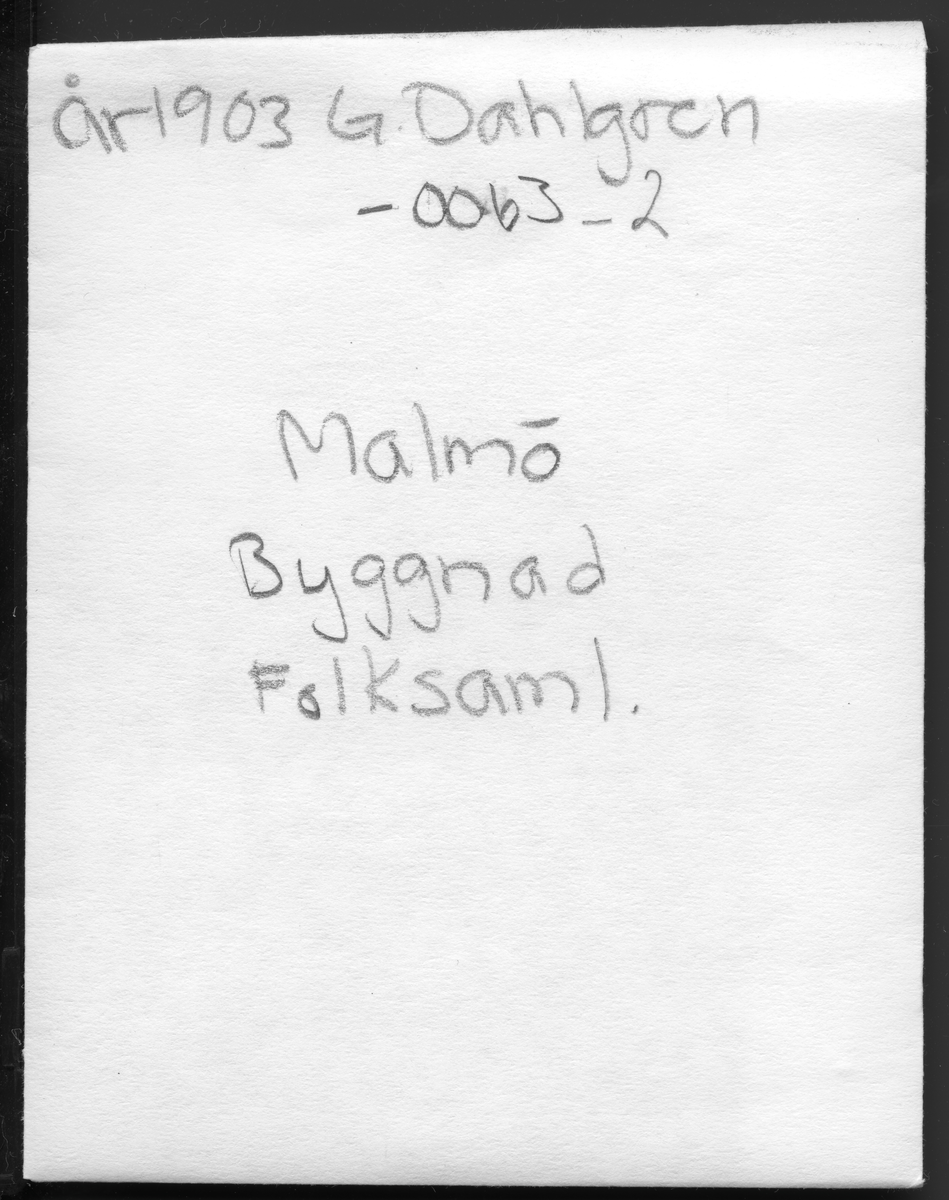 år1903 G. Dahlgren
-0063-2
Malmö
Byggnad
Folksaml.